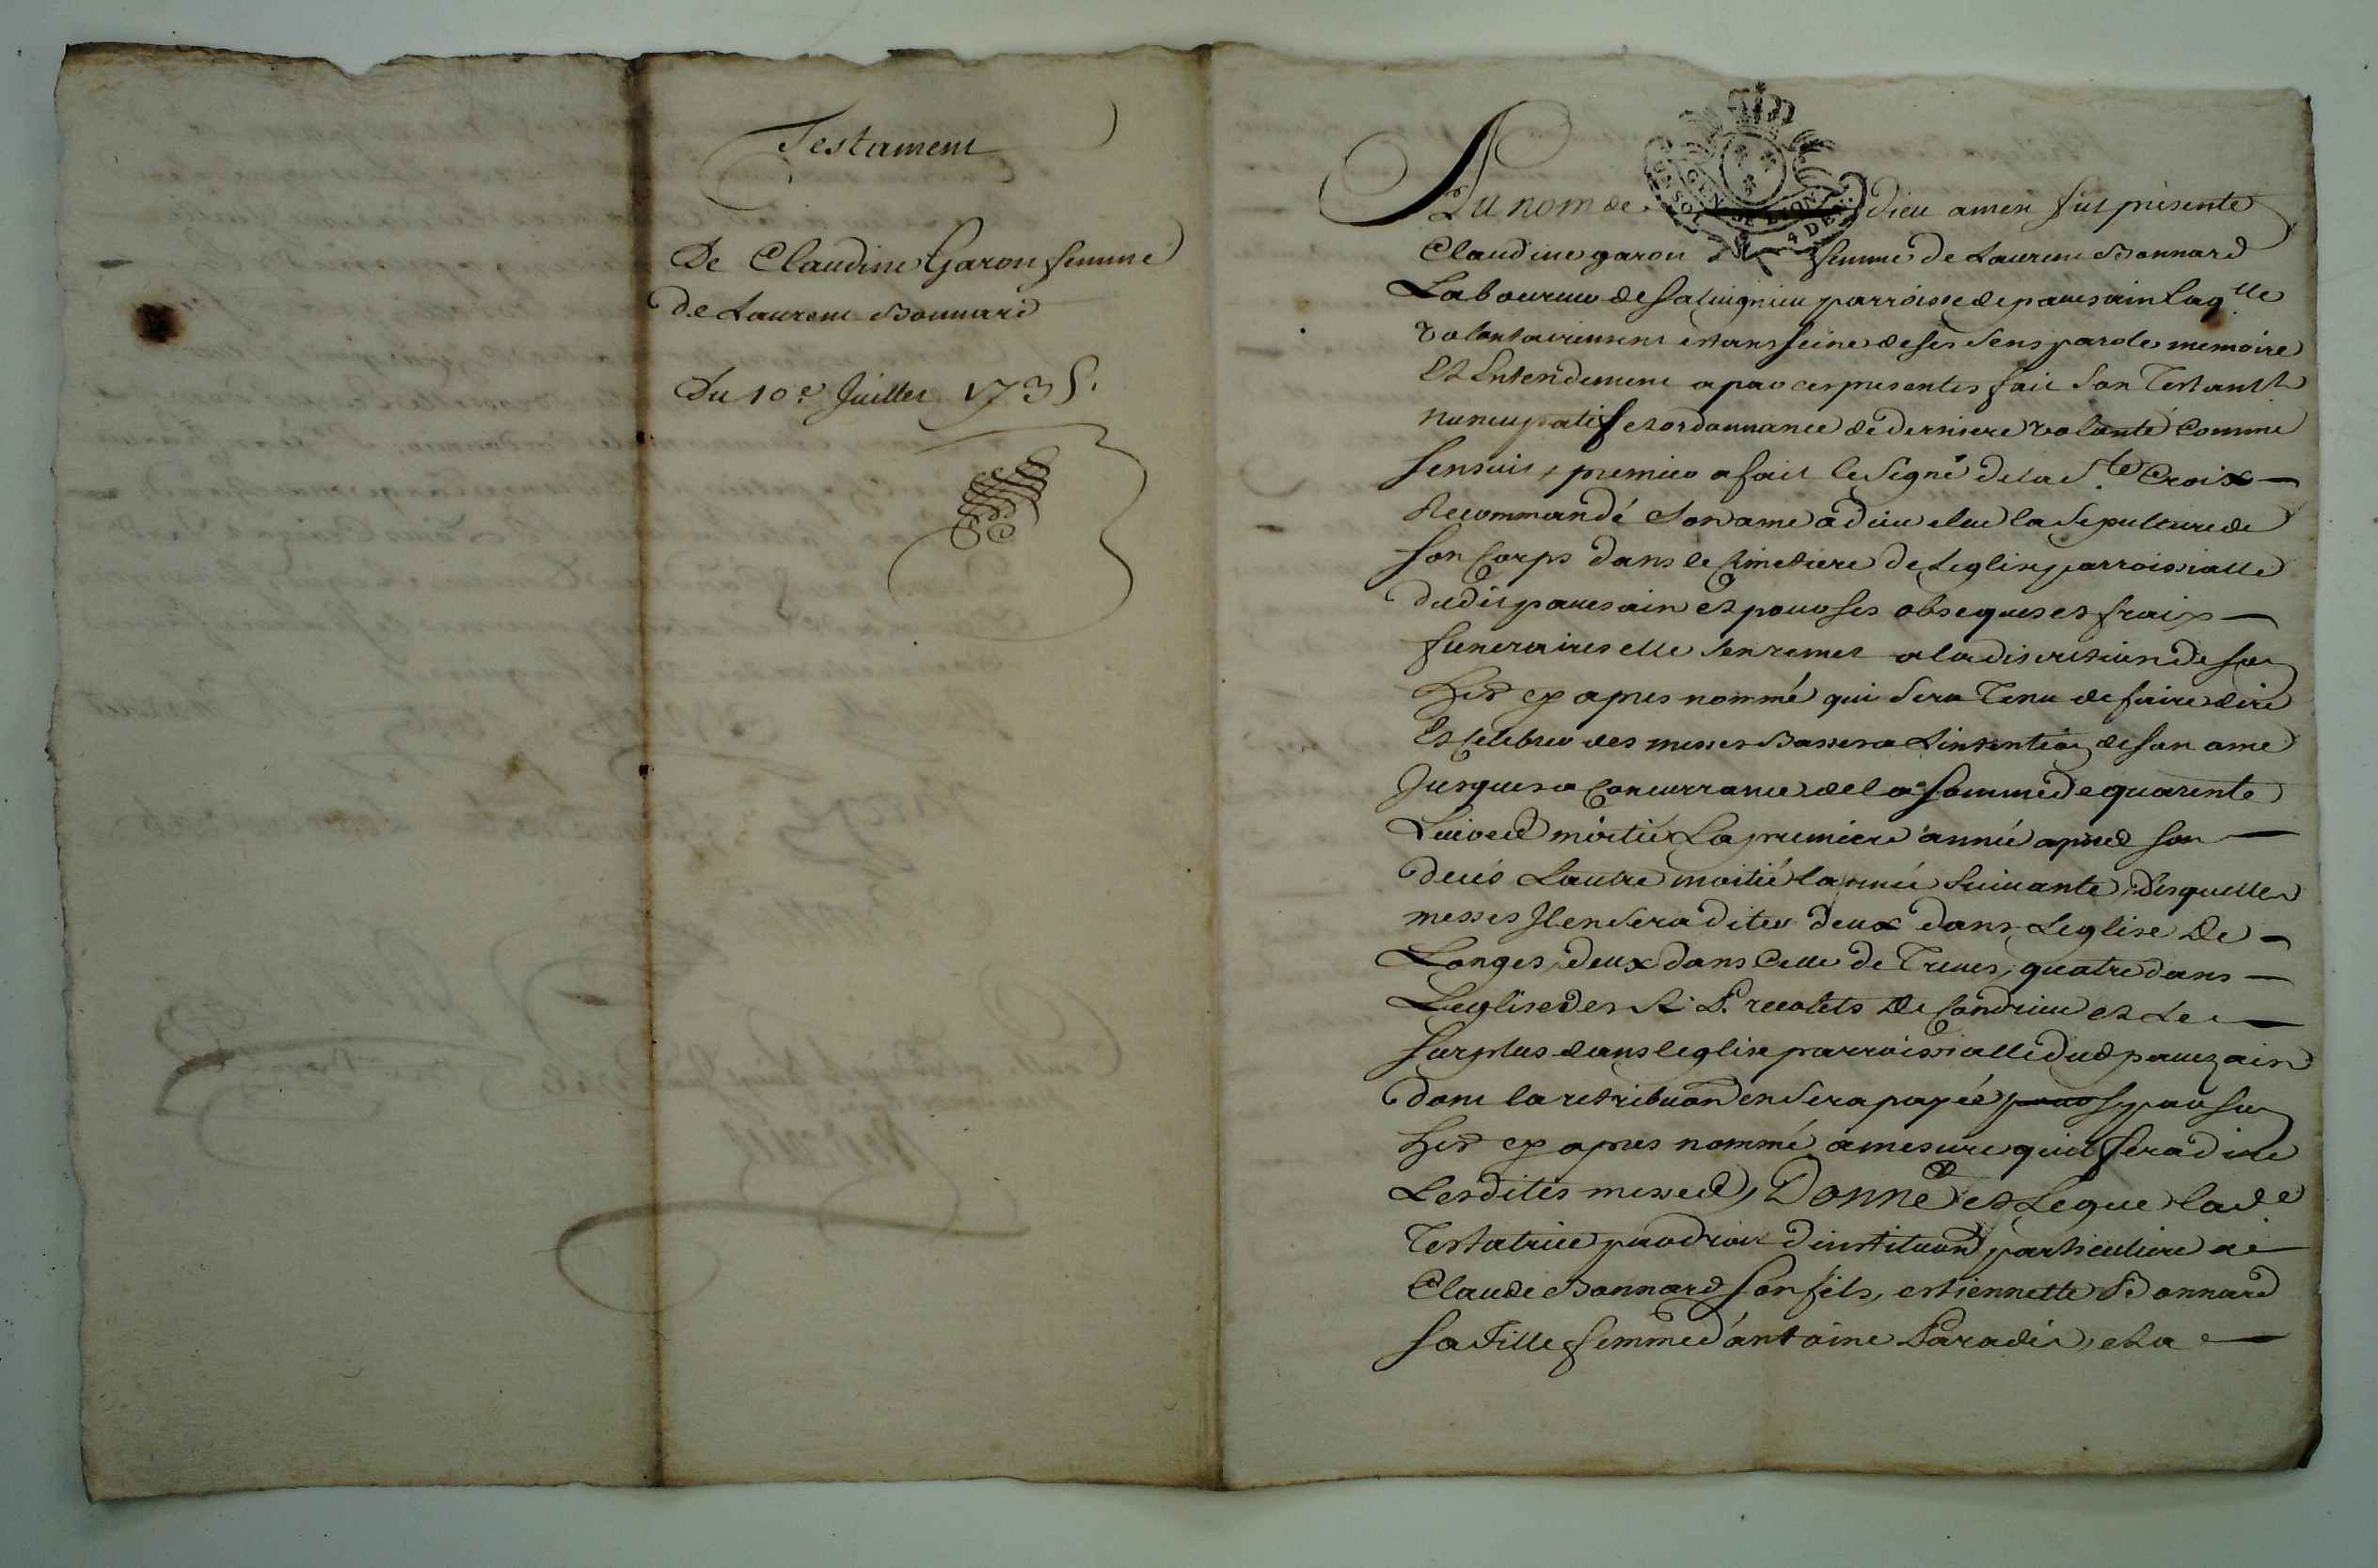 Testament
De Claudine Garon femme
de Laurent Bonnard
Du 10e. Juillet 1735.
GEN DE LYON
4 DEN
Au nom de dieu amen fut presente
Claudine garon femme de Laurent Bonnard
Laboureur de parroisse de pauesain laqlle
volontairement estans seine de ses sens parole memoire
Et Entendement a par ces presentes fait son Testamt
nuncupatif et ordonnance de derniere volonté Comme
sensuit, premier a fait le signe de la Ste Croix
Recommandé son ame a dieu elue la sepulture de
son Corps dans le Cimetiere de Leglise parroissialle
dudit pauesain et pour ses obseques et fraix
funeraires elle sen remet a la discretion de son
her cy apres nommé qui sera Tenu de faire dire
Et Celebrer des messes Basses a Lintention de son ame
Jusques a Concurrance de la somme de quarente
Livres moitié La premiere année apres son
decés Lautre moitié lannée suivante, desquelles
messes Il en sera dites deux dans Leglise De
Longes, deux dans Celle de Treues, quatre dans
Leglise des R. P. recolets de Condrieu et Le
surplus dans leglise parroissialle dud pauezain
dont la retribuon en sera payée par son
her cy apres nommé a mesure quil fera dire
Lesdites messes, Donne et Legue lade
Testatrice par droit dinstituon particuliere a
Claude Bonnard son fils, estiennette Bonnard
sa fille femme d'antoine Paradis, et a